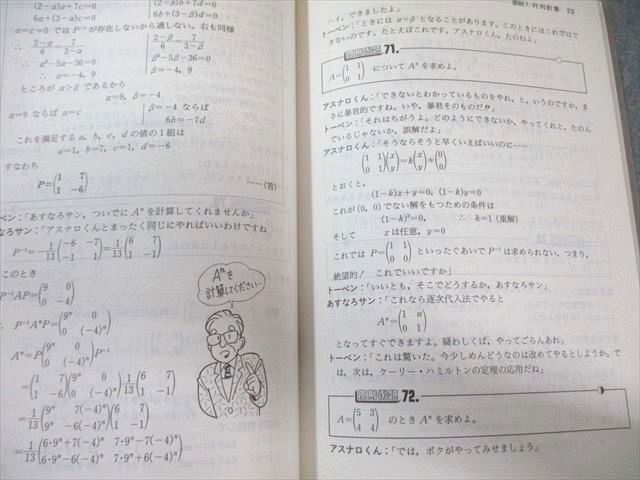 (2−a)a+7c=0
6a+(3−a)c=0
(2−β)b+7d=0
6b+(3−β)d=0
a=c=0 ではP⁻¹が存在しないから適しない。右も同様
∴ (2−a)/6=7/(3−a)
(2−β)/6=7/(3−β)
∴ a²−5a−36=0
β²−5β−36=0
∴ a=−4, 9
β=−4, 9
ところが a>β であるから
a=9, β=−4
a=9 ならば a=c
β=−4 ならば
6b=−7d
これを満足する a, b, c, d の値の1組は
a=1, b=7, c=1, d=−6
すなわち
P=(1 7
1 −6) ……(答)
ペン:「あすなろサン、ついでに Aⁿ を計算してくれませんか」
なろサン:「アスナロくんとまったく同じにやればいいわけですね
P⁻¹=−1/13(−6 −7
−1 1)=1/13(6 7
1 −1)
このとき
P⁻¹AP=(9 0
0 −4)
∴ P⁻¹AⁿP=(9ⁿ 0
0 (−4)ⁿ)
Aⁿ=P(9ⁿ 0
0 (−4)ⁿ)P⁻¹
=(1 7
1 −6)(9ⁿ 0
0 (−4)ⁿ)1/13(6 7
1 −1)
=1/13(9ⁿ 7(−4)ⁿ
9ⁿ −6(−4)ⁿ)(6 7
1 −1)
=1/13(6·9ⁿ+7(−4)ⁿ 7·9ⁿ−7(−4)ⁿ
6·9ⁿ−6(−4)ⁿ 7·9ⁿ+6(−4)ⁿ)
Aⁿを
計算してください…
行列計算 75
ハイ、できましたよ」
トーペン:「ときには α=β となることがあります。このときにはこれではで
きないのです。たとえばこれです。アスナロくん、たのむよ」
71.
A=(1 1
0 1) について Aⁿ を求めよ。
アスナロくん:「できないとわかっているものをやれ、と、いうのですか。ま
さに暴君的ですね。いや、暴君そのものだ!!」
トーペン:「それはちがうよ。どのようにできないか、やってくれと、たのん
でいるじゃないか。誤解だよ」
アスナロくん:「そうならそうと早くいえばいいのに……
(1 1
0 1)(x
y)=k(x
y)≠(0
0)
とおくと、
(1−k)x+y=0, (1−k)y=0
これが (0, 0) でない解をもつための条件は
(1−k)²=0, ∴ k=1 (重解)
そして x は任意, y=0
これでは P=(1 1
0 0) といったぐあいで P⁻¹ は求められない。つまり、
絶望的! これでいいですか」
トーペン:「いいとも。そこでどうするか。あすなろサン」
あすなろサン:「これなら逐次代入法でやると
Aⁿ=(1 n
0 1)
となってすぐできますよ。疑わしくば、やってごらんあれ」
トーペン:「これは驚いた。今少しめんどうなのは改めてやるとしようか。で
は、次は、ケーリー・ハミルトンの定理の応用だね」
72.
A=(5 3
4 4) のとき Aⁿ を求めよ。
アスナロくん:「では、ボクがやってみせましょう」